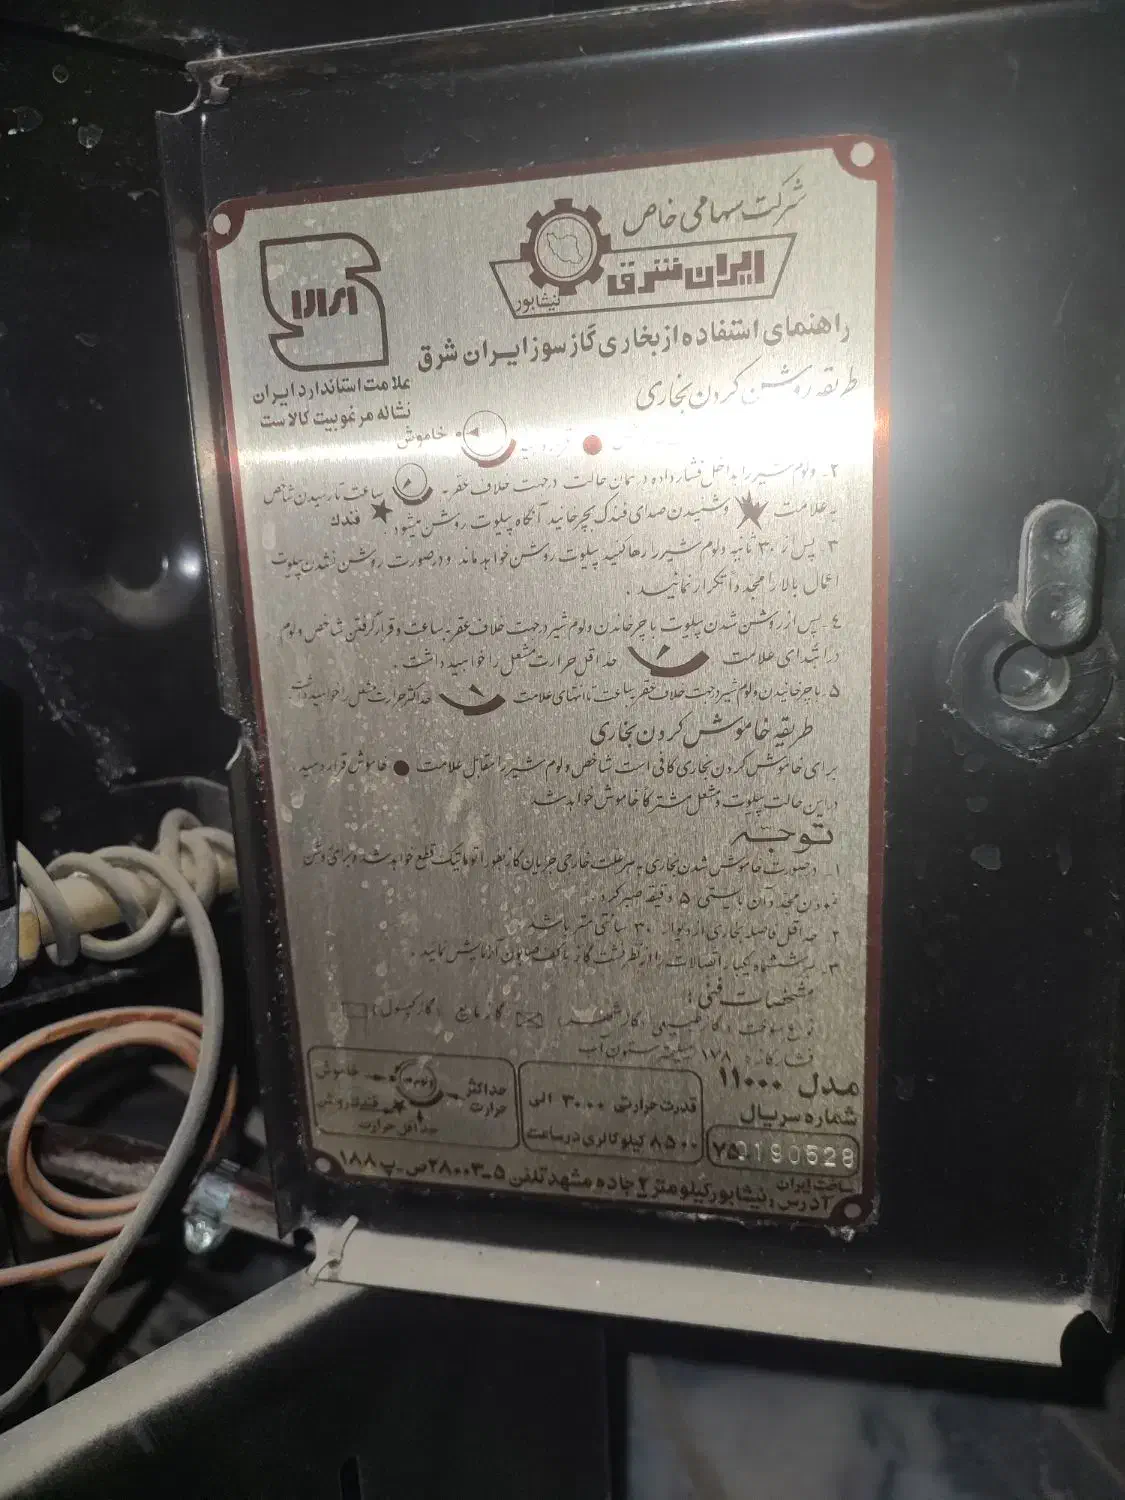 شرکت سهامی خاص
ایران شرق
نیشابور
علامت استاندارد ایران
نشانه مرغوبیت کالاست
راهنمای استفاده از بخاری گازسوز ایران شرق
طریقه روشن کردن بخاری
قرار دهید خاموش
۲- ولوم شیر را بداخل فشار داده در همان حالت درجهت خلاف عقربه ساعت تا رسیدن شاخص
به علامت وشنیدن صدای فندک بچرخانید آنگاه پیلوت روشن میشود. فندک
۳- پس از ۳۰ ثانیه ولوم شیر را رها کنید پیلوت روشن خواهد ماند و درصورت روشن نشدن پیلوت
اعمال بالا را مجددا تکرار نمائید.
۴- پس از روشن شدن پیلوت با چرخاندن ولوم شیر درجهت خلاف عقربه ساعت و قرار گرفتن شاخص ولوم
در ابتدای علامت حداقل حرارت مشعل را خواهید داشت.
۵- با چرخانیدن ولوم شیر درجهت خلاف عقربه ساعت تا انتهای علامت حداکثر حرارت مشعل را خواهید داشت
طریقه خاموش کردن بخاری
برای خاموش کردن بخاری کافی است شاخص ولوم شیر را مقابل علامت خاموش قرار دهید
دراین حالت پیلوت و مشعل مشترکا خاموش خواهد شد
توجه
۱- درصورت خاموش شدن بخاری به هر علت خارجی جریان گاز بطور اتوماتیک قطع خواهد شد و برای روشن
نمودن مجدد آن بایستی ۵ دقیقه صبر کرد.
۲- حداقل فاصله بخاری از دیوار ۳۰ سانتی متر باشد
۳- اتصالات را از نظر نشت گاز با کف صابون آزمایش نمائید.
مشخصات فنی:
نوع سوخت: گاز طبیعی (گاز شهر) گاز مایع (گاز کپسول)
فشار گاز: ۱۷۸ میلیمتر ستون آب
مدل ۱۱۰۰۰
شماره سریال
۷۵ 0190528
قدرت حرارتی ۳۰۰۰ الی
۸۵۰۰ کیلو کالری درساعت
خاموش
ولوم
حداکثر حرارت
فندک روشن
حداقل حرارت
ساخت ایران
آدرس: نیشابور کیلومتر ۲ جاده مشهد تلفن ۵-۲۸۰۰۳ ص-پ ۱۸۸